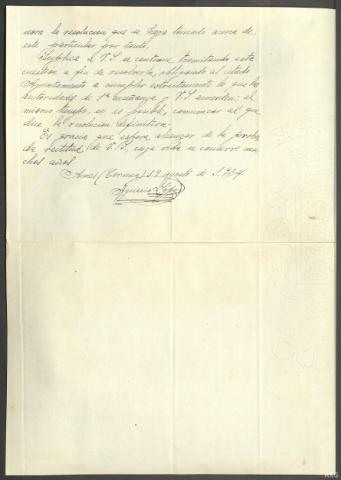 nora la resolucion que se haya tomado acerca de
este particular, por tanto,
Suplica á V.S. se continue tramitando esta
cuestion a fin de resolverla, obligando al citado
Ayuntamiento a cumplir estrictamente lo que las
autoridades de 1ª enseñanza y V.S. acuerden; al
mismo tiempo, si es posible, comunicar al que
dice la resolucion definitiva.
Es gracia que espera alcanzar de la proba
da rectitud de V.S., cuya vida se conserve mu
chos años.
Ames (Coruña) 12 agosto de 1.934